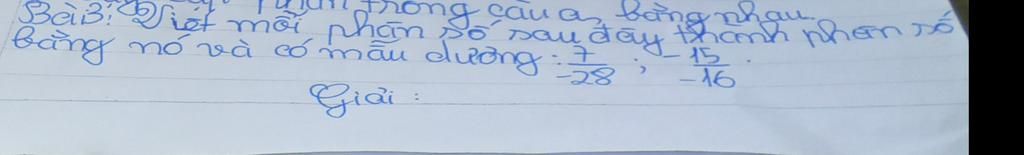 phân trong câu a, bằng nhau.
Bài 3: b, Viết mỗi phân số sau đây thành phân số
bằng nó và có mẫu dương: 7/-28 ; -15/-16.
Giải :